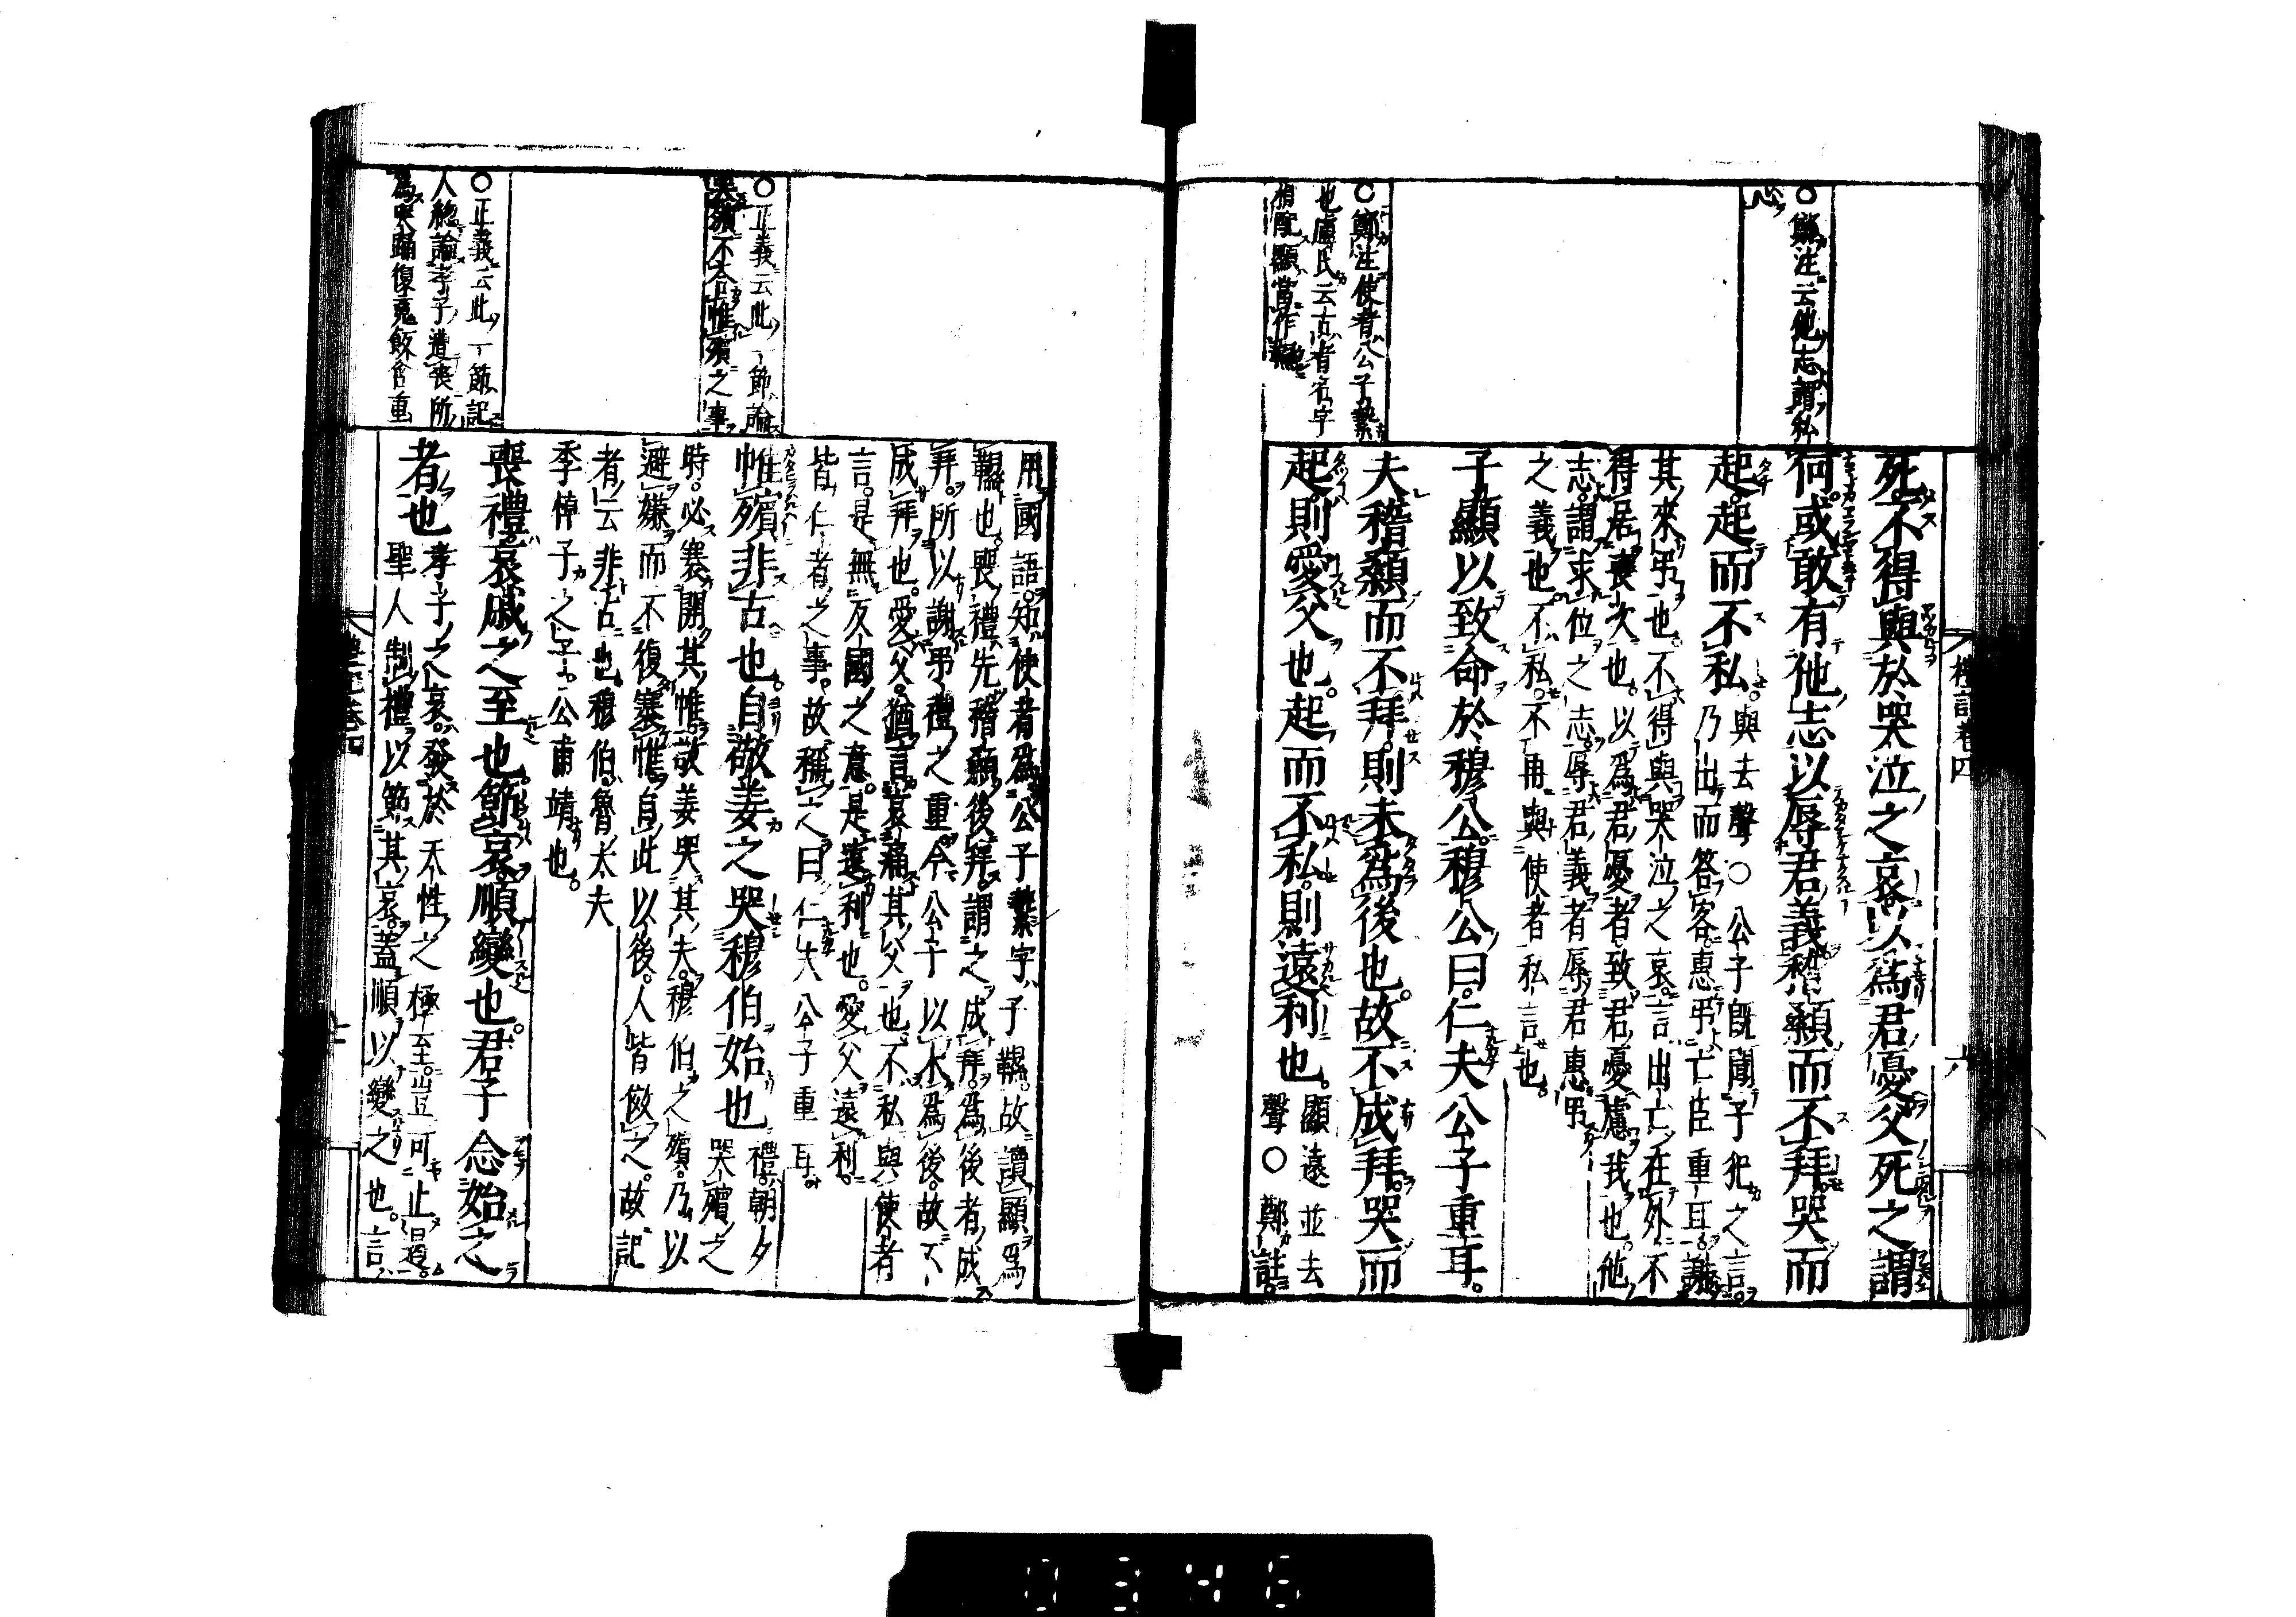 禮記卷四
六
○鄭注云他志謂私
心
死不得與於哭泣之哀以爲君憂父死之謂
何或敢有他志以辱君義稽顙而不拜哭而
起起而不私與去聲○公子既聞子犯之言。
乃出而答客惠弔亡臣重耳謝
其來弔也。不得與哭泣之哀。言出亡在外不
得居喪次也。以爲君憂者致君憂慮我也。他
志。謂求位之志。辱君義者辱君惠弔
之義也。不私。不再與使者私言也。
○鄭注使者公子縶
也盧氏云古者名字
相配顯當作韅
子顯以致命於穆公。穆公曰。仁夫公子重耳。
夫稽顙而不拜。則未爲後也。故不成拜。哭而
起。則愛父也。起而不私。則遠利也。
顯遠並去
聲○鄭註。
用國語。知使者爲公子縶字子韅。故讀顯爲
韅也。喪禮先稽顙後拜。謂之成拜。爲後者成
拜。所以謝弔禮之重。今公子以不爲後。故不
成拜也。愛父。猶言哀痛其父也。不私與使者
言。是無反國之意。是遠利也。愛父遠利。
皆仁者之事。故稱之曰仁夫公子重耳。
○正義云此一節論
哭殯不合帷殯之事
帷殯非古也自敬姜之哭穆伯始也
禮。朝夕
哭殯之
時。必褰開其帷。敬姜哭其夫。穆伯之殯。乃以
避嫌而不復褰帷。自此以後。人皆倣之。故記
者云非古也。穆伯。魯大夫
季悼子之子。公甫靖也。
○正義云此一節記
人總論孝子遭喪所
爲哭踊復魂飯含重
喪禮。哀戚之至也。節哀。順變也。君子念始之
者也
孝子之哀。發於天性之極至。豈可止遏。
聖人制禮以節其哀。蓋順以變之也。言
禮記卷四